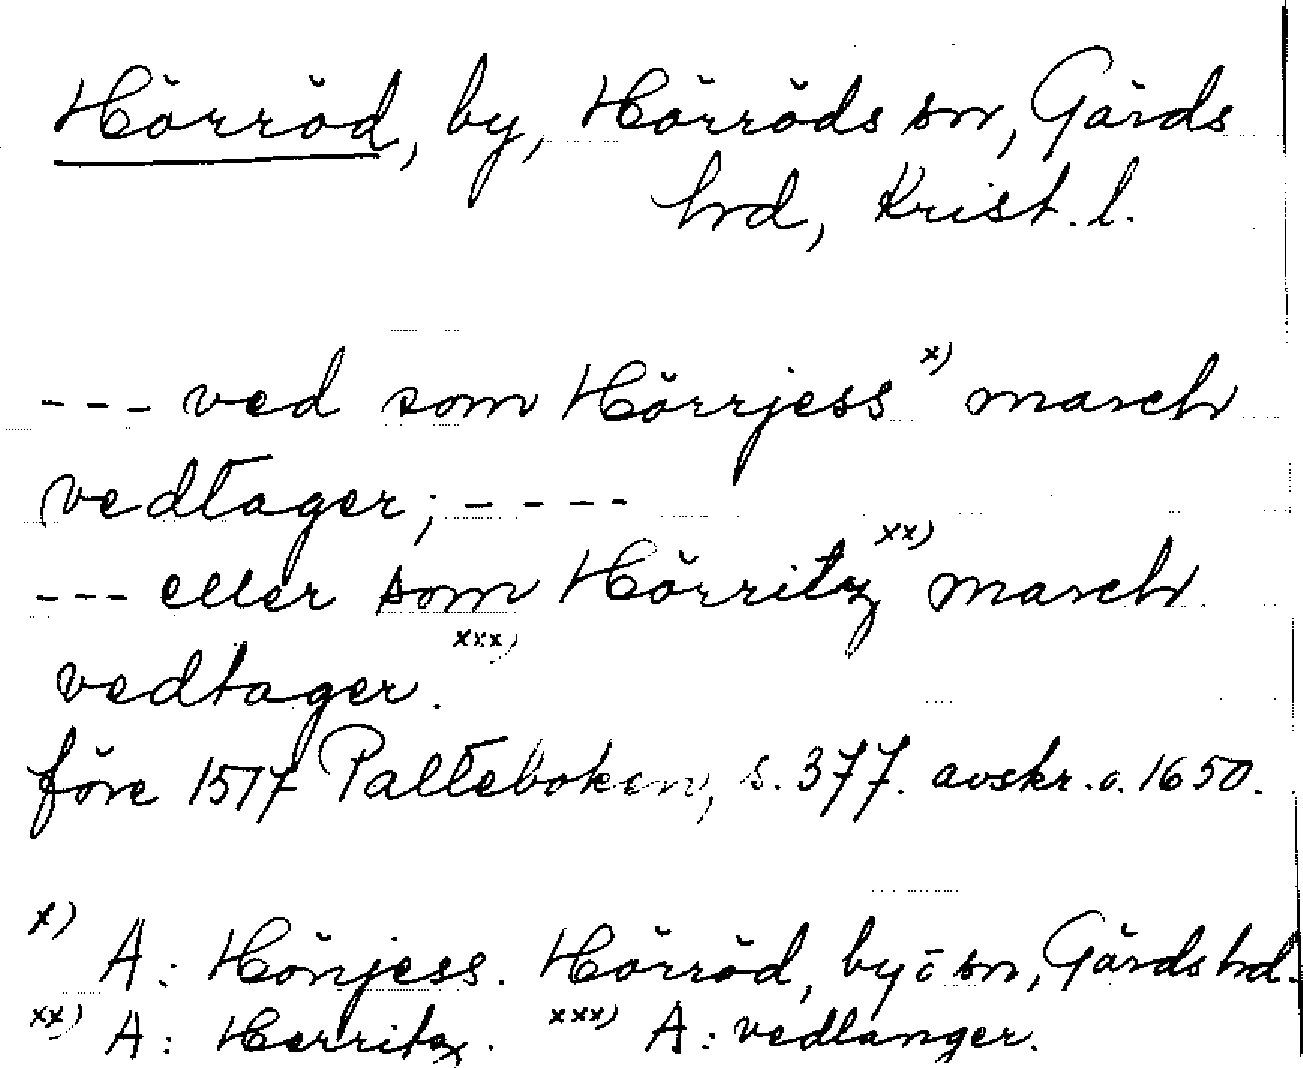 Hörröd, by, Hörröds sn, Gärds
hrd, Krist. l.
--- ved som Hörrjess x) march
vedtager; ----
--- eller som Hörritz xx) march
xxx)
vedtager.
före 1517 Palteboken, s. 377. avskr. o. 1650.
x) A: Hönjess. Hörröd, by o sn, Gärds hrd.
xx) A: Herritz. xxx) A: vedlanger.